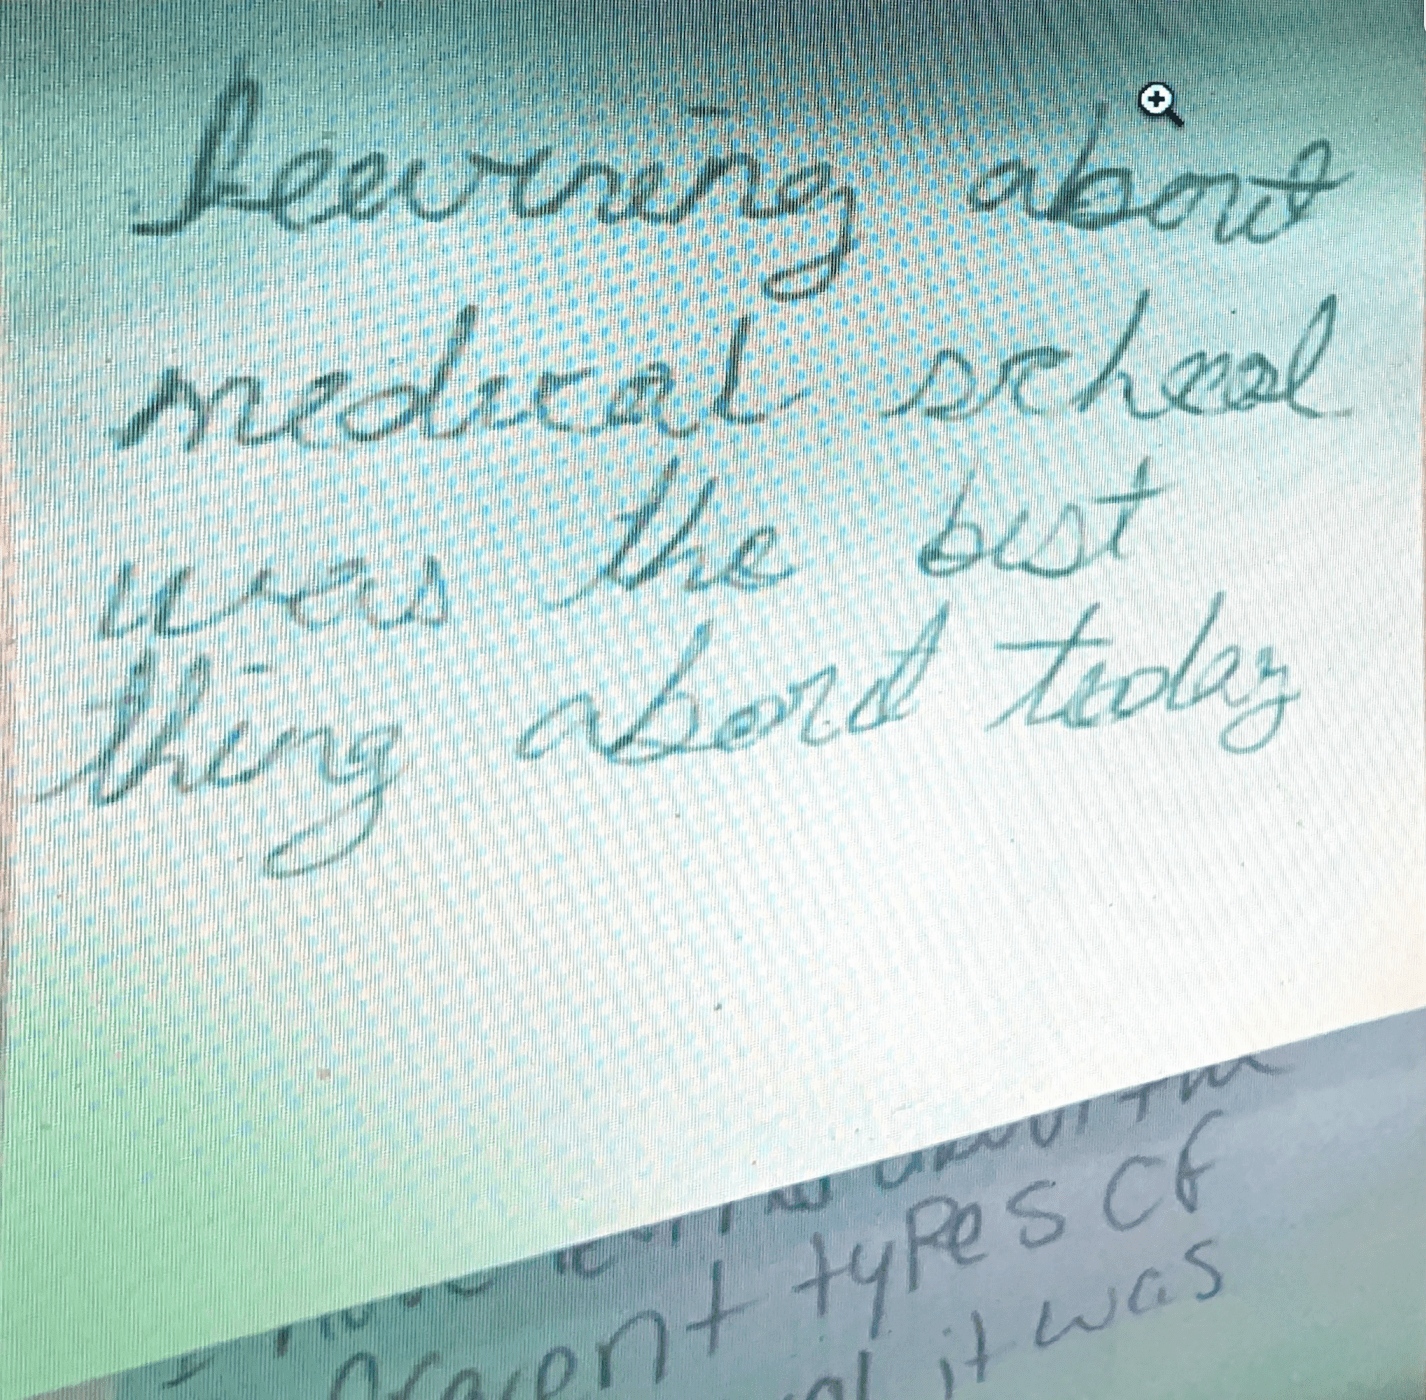 Learning about
medical school
was the best
thing about today
types of
it was